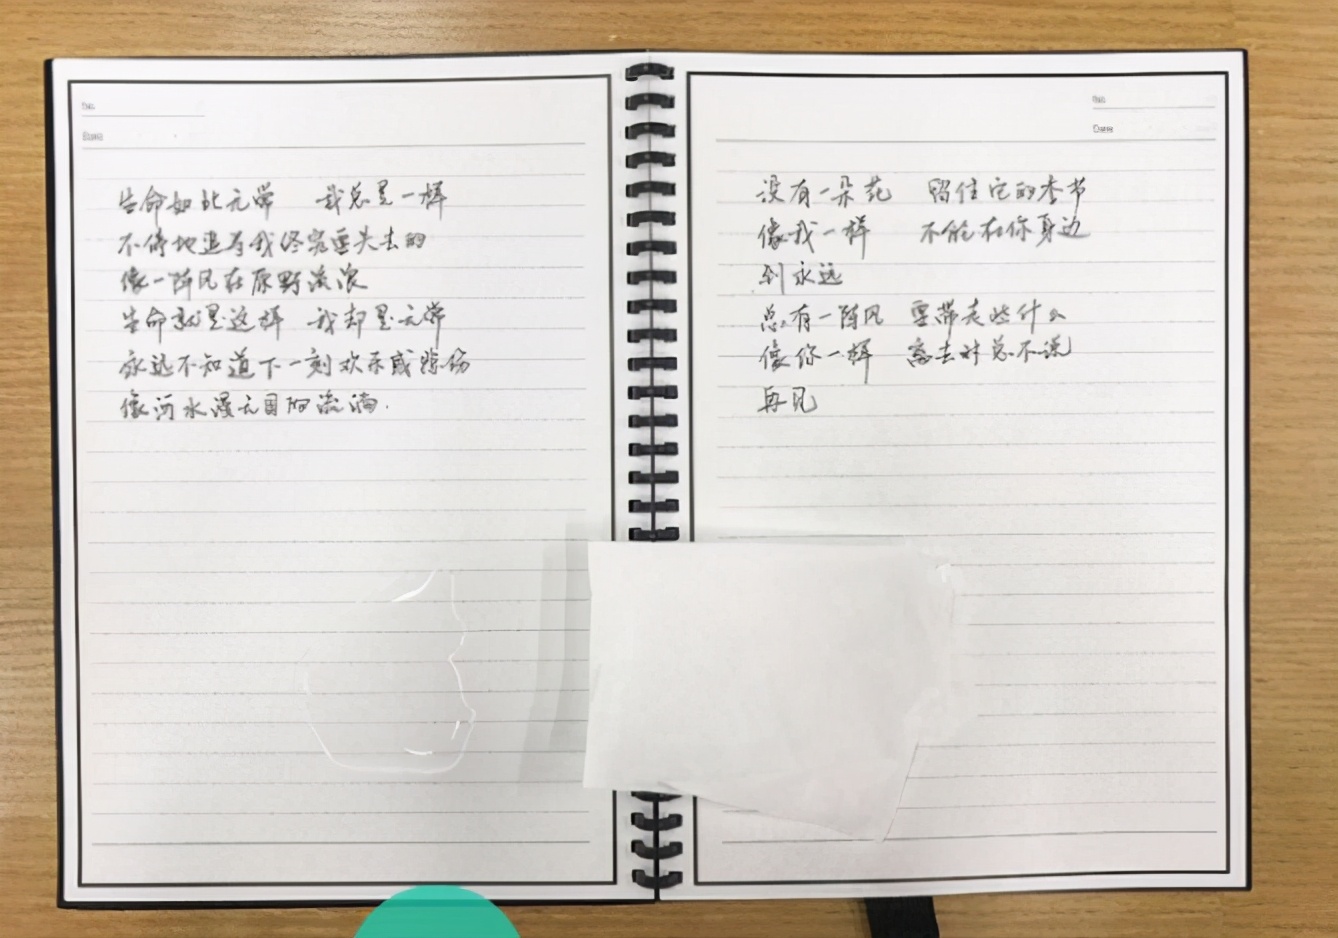 No.
Date
生命如此无常 我总是一样
不停地追寻我终究要失去的
像一阵风在原野流浪
生命就是这样 我却是无常
永远不知道下一刻欢乐或悲伤
像河水漫无目的流淌.
No.
Date
没有一朵花 留住它的季节
像我一样 不能在你身边
到永远
总有一阵风 要带走些什么
像你一样 离去时总不说
再见